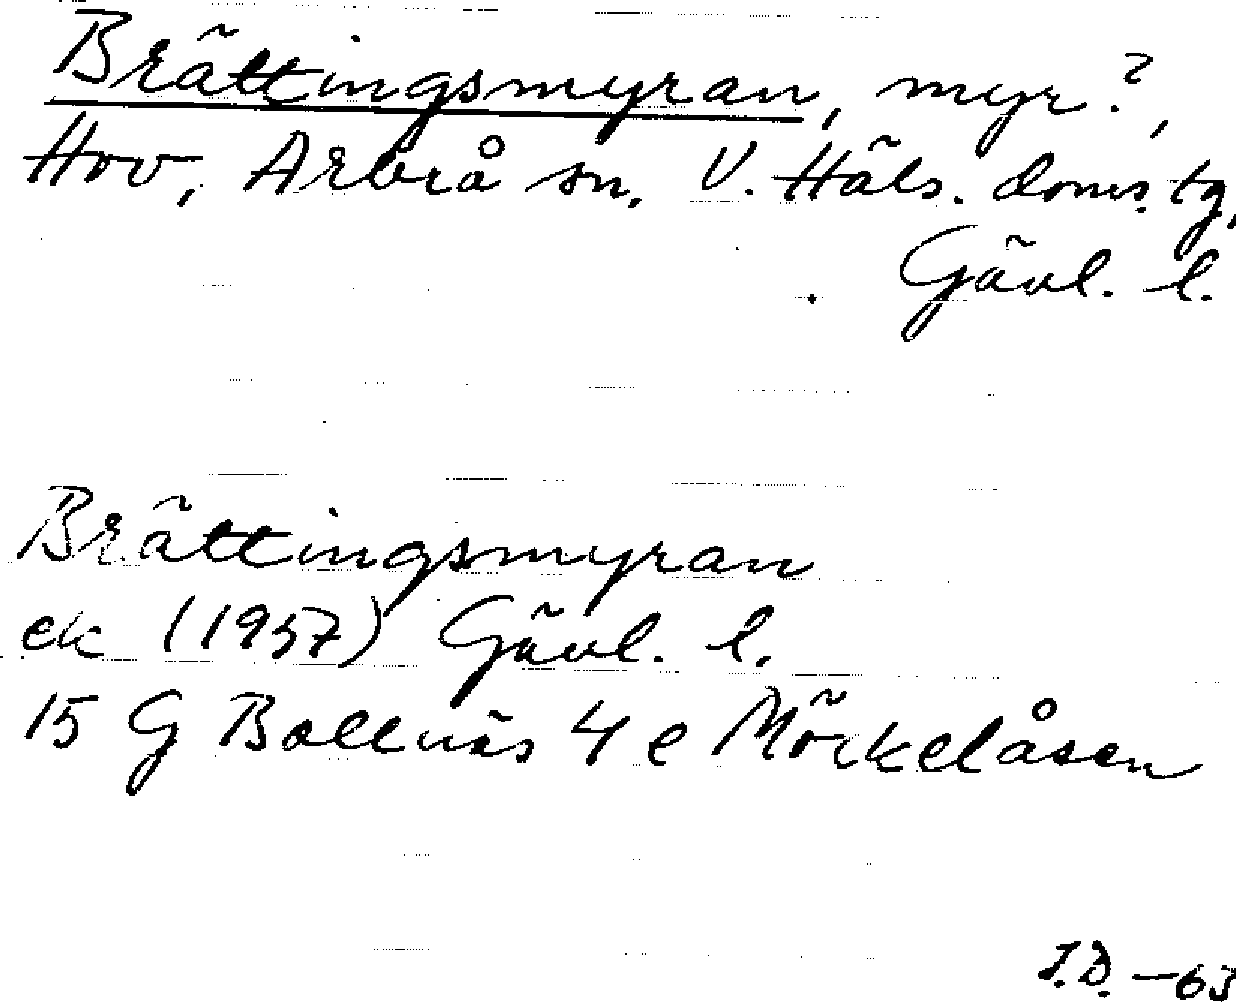 Brättingsmyran, myr?,
Hov, Arbrå sn, V. Häls. doms. tg,
Gävl. l.
Brättingsmyran
ek (1957) Gävl. l.
15 G Bollnäs 4 e Mörkelåsen
I.D. -63